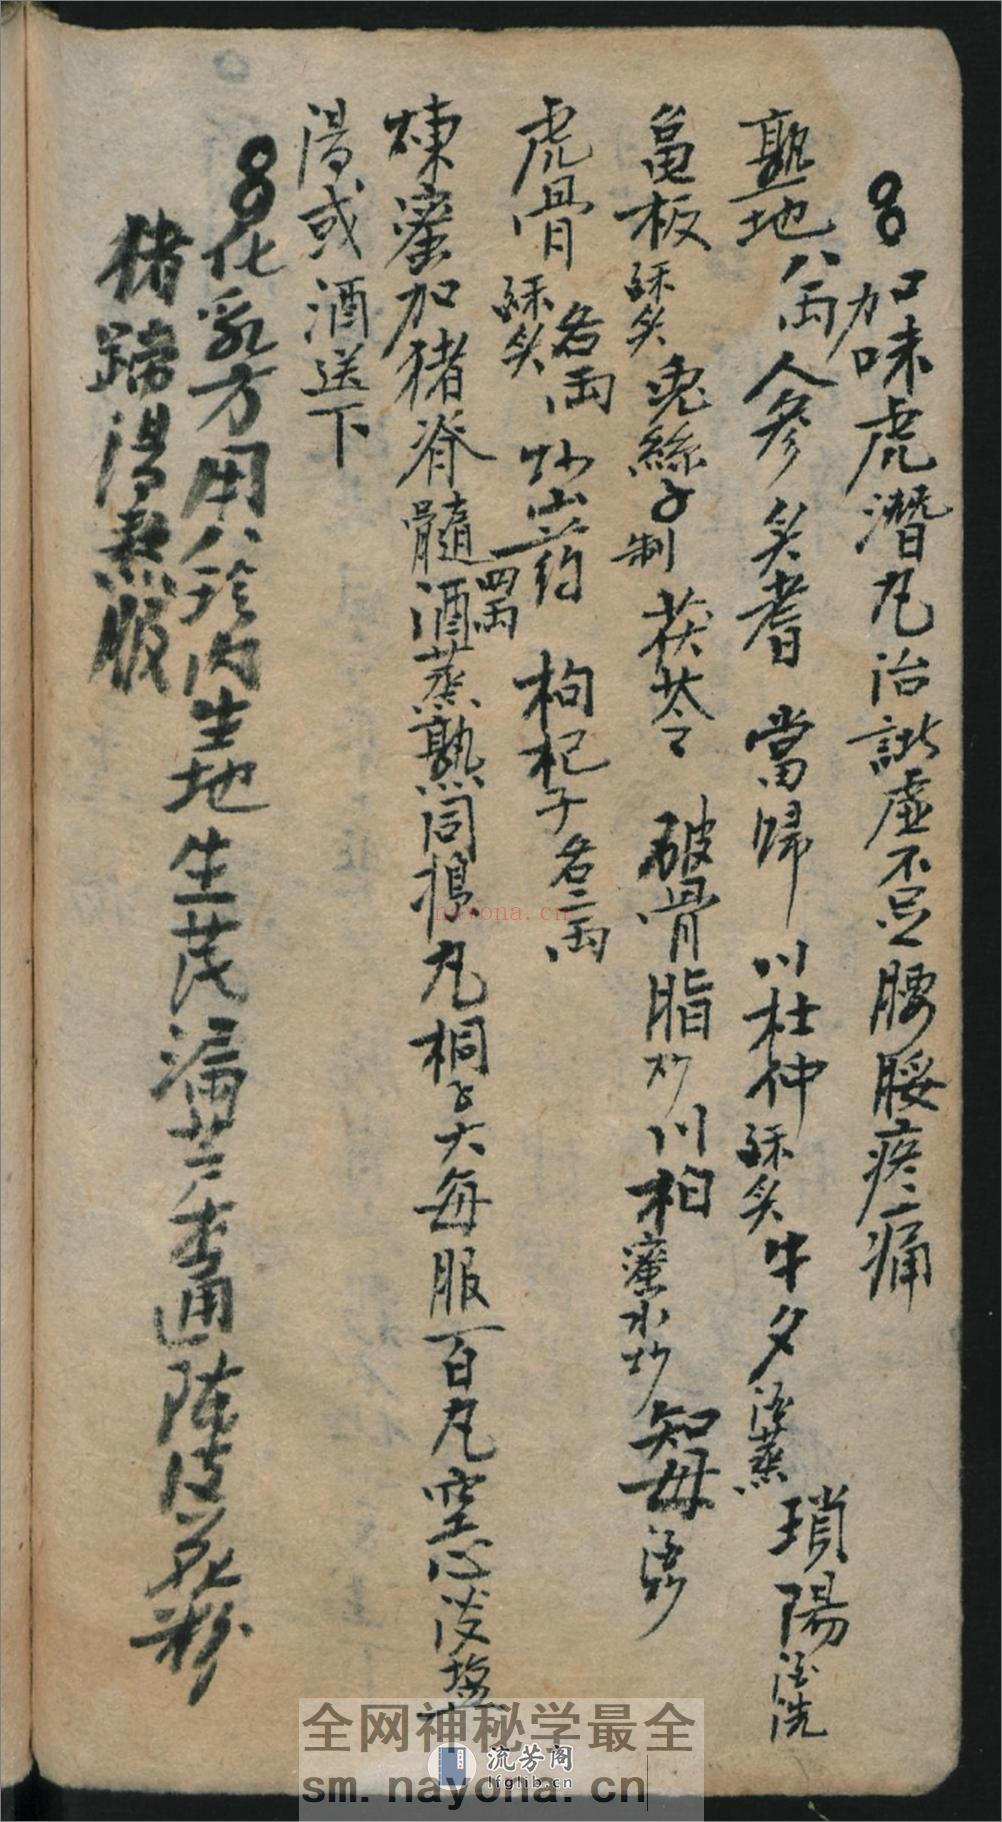 加味虎潛丸治諸虛不足腰腿疼痛
熟地八両人參炙耆 當歸 川杜仲酥炙牛夕酒蒸 瑣陽酒洗
龜板酥炙 兎絲子制 茯苓 破骨脂炒川柏蜜水炒知母酒炒
虎骨酥炙各両 炒山药四両 枸杞子各二両
煉蜜加猪脊髓酒蒸熟同搗丸桐子大每服百丸空心淡塩
湯或酒送下
化乳方用八珍内生地生茂漏芦木通陈皮花粉
猪蹄湯熬服
nayona.cn
全网神秘学最全
流芳阁
lfglib.cn
sm.nayona.cn